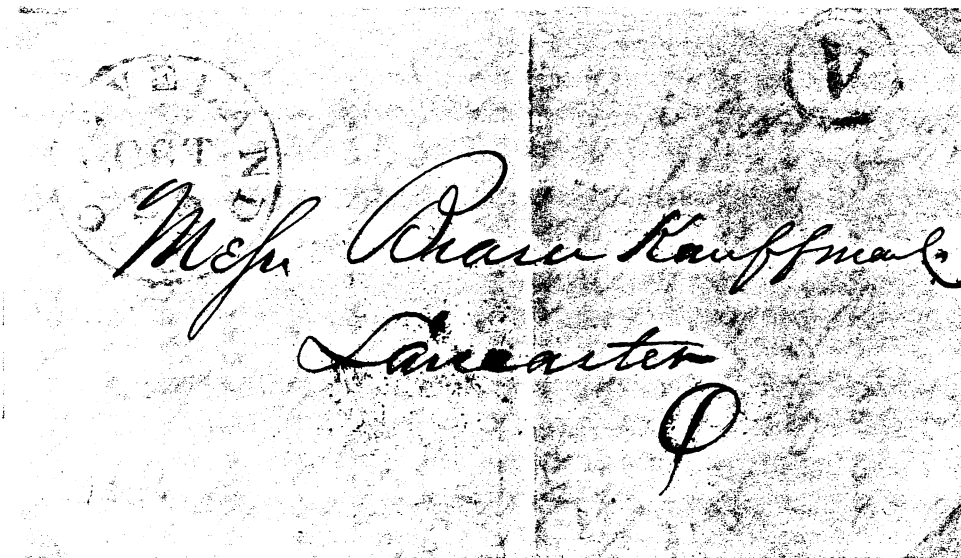 CLEVELAND O
OCT
V
Messr Kauffman
Lancaster
O